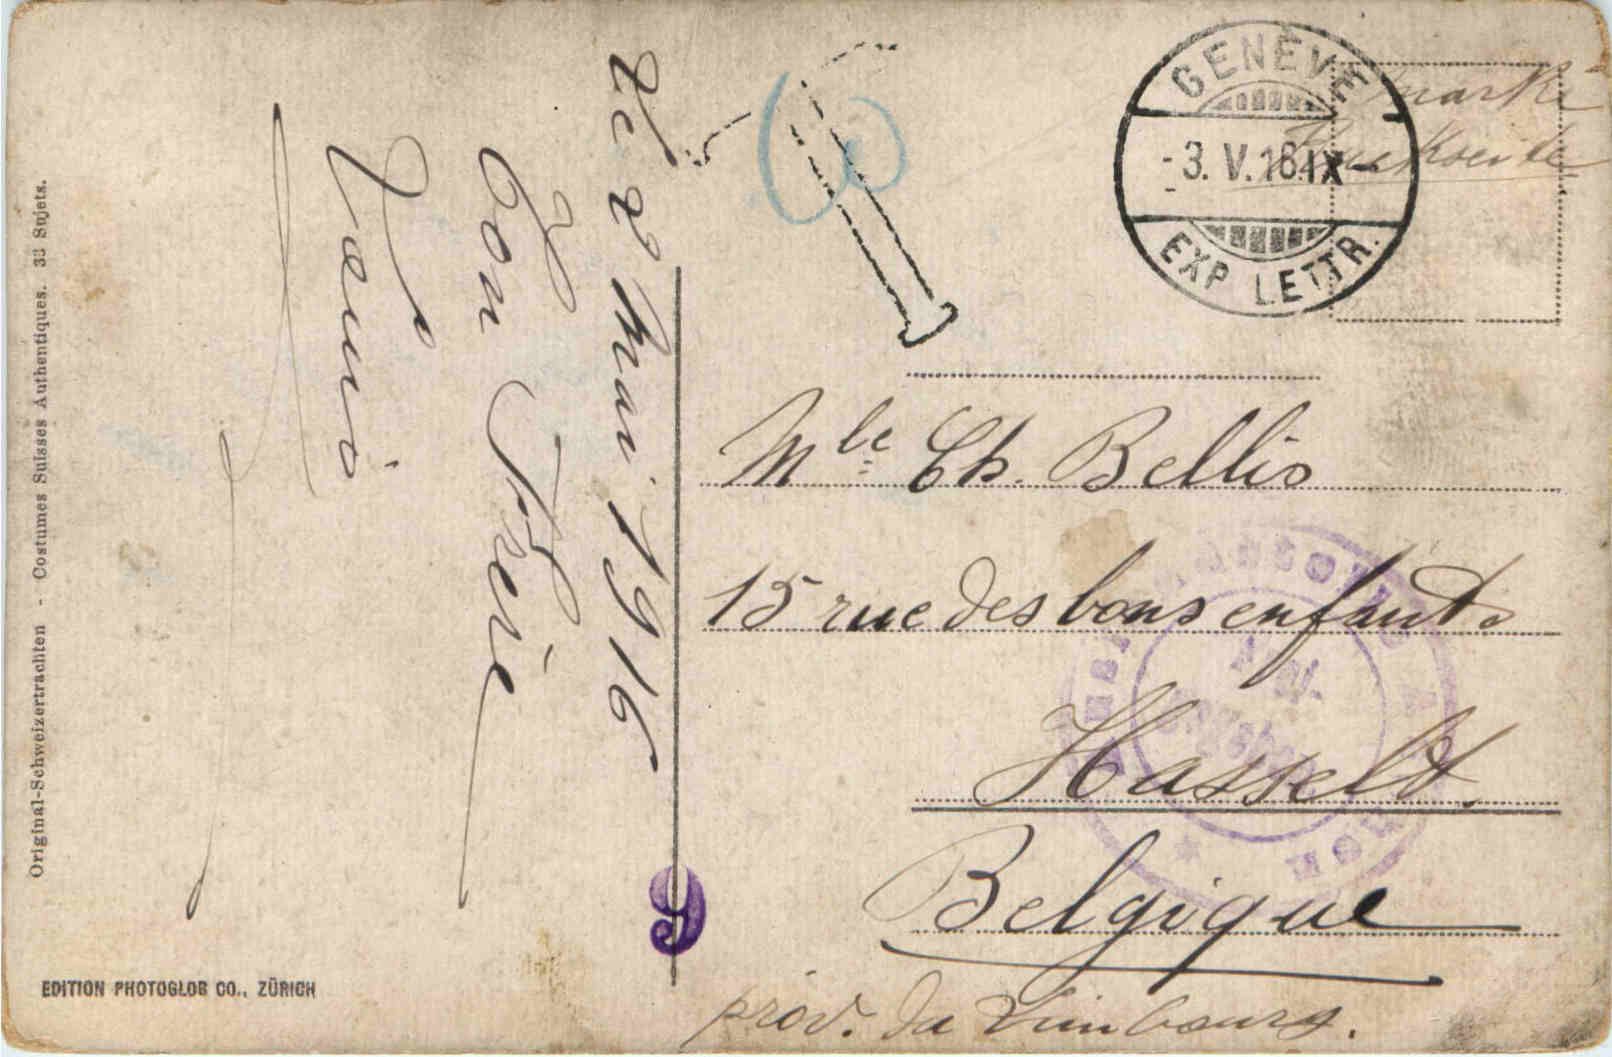 Original-Schweizertrachten - Costumes Suisses Authentiques. 33 Sujets.
EDITION PHOTOGLOB CO., ZÜRICH
Le 2 Mai 1916
Ton Frère
9
GENÈVE
-3. V. 16. IX-
EXP. LETTR.
Marke
Rückseite
T
Mlle Ch. Bellis
15 rue des bons enfants
Hasselt.
Belgique
prov. du Limbourg.